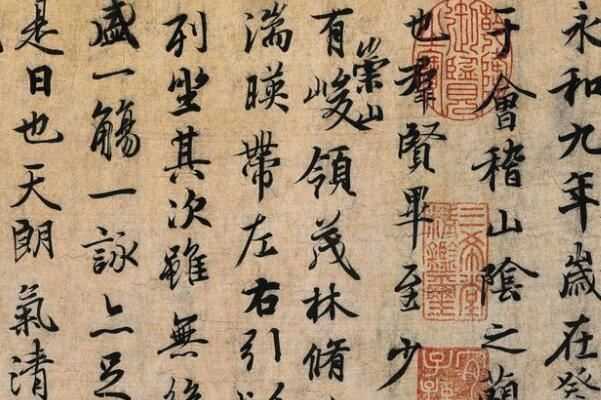 永和九年歲在癸
于會稽山陰之蘭
也羣賢畢至少
有崇山峻領茂林脩
湍暎帶左右引以
列坐其次雖無
盛一觴一詠亦足
是日也天朗氣清
三希堂
精鑑璽
宜子